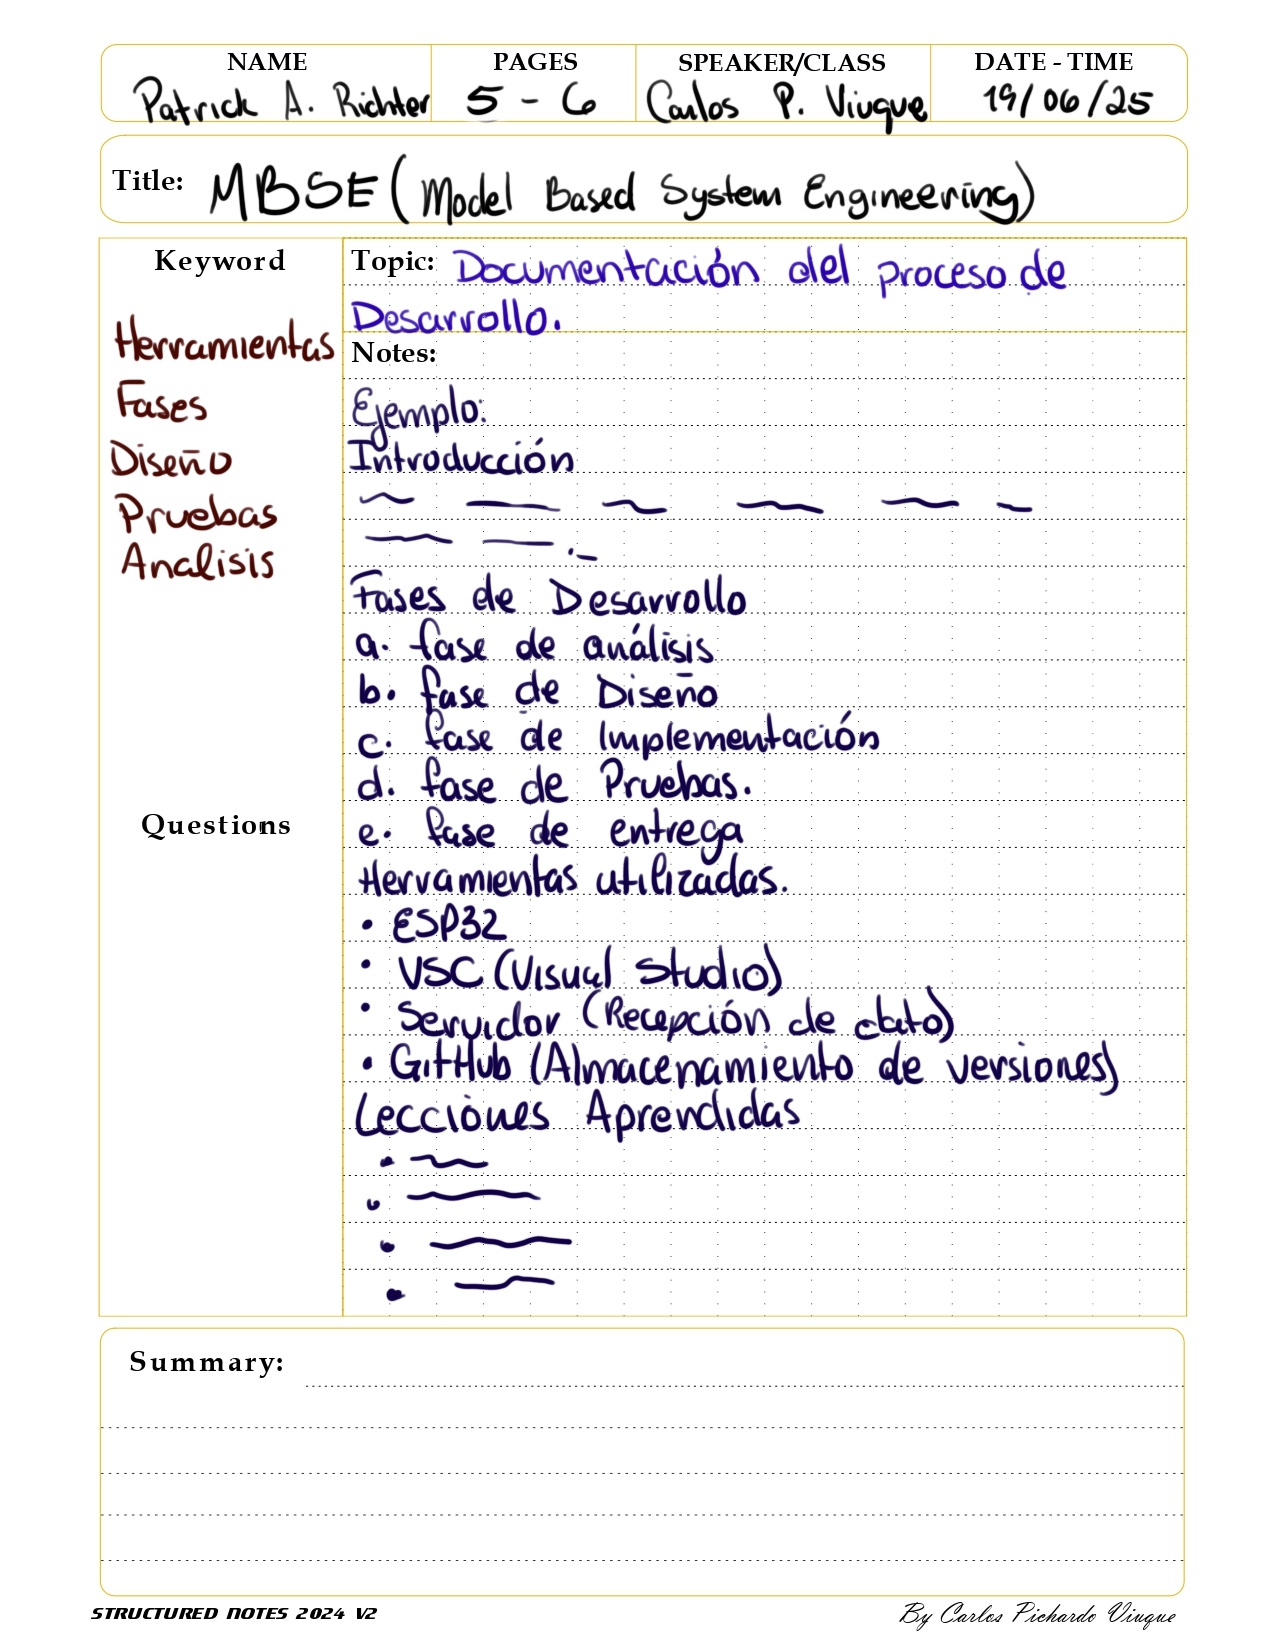 NAME PAGES SPEAKER/CLASS DATE - TIME
Patrick A. Richter 5 - 6 Carlos P. Viuque 19/06/25
Title: MBSE (Model Based System Engineering)
Keyword
Herramientas
Fases
Diseño
Pruebas
Analisis
Questions
Topic: Documentación del proceso de
Desarrollo.
Notes:
Ejemplo:
Introducción
Fases de Desarrollo
a. fase de análisis
b. fase de Diseño
c. fase de Implementación
d. fase de Pruebas.
e. fase de entrega
Herramientas utilizadas.
• ESP32
• VSC (Visual Studio)
• Servidor (Recepción de dato)
• GitHub (Almacenamiento de versiones)
Lecciones Aprendidas
Summary:
STRUCTURED NOTES 2024 V2 By Carlos Pichardo Viuque